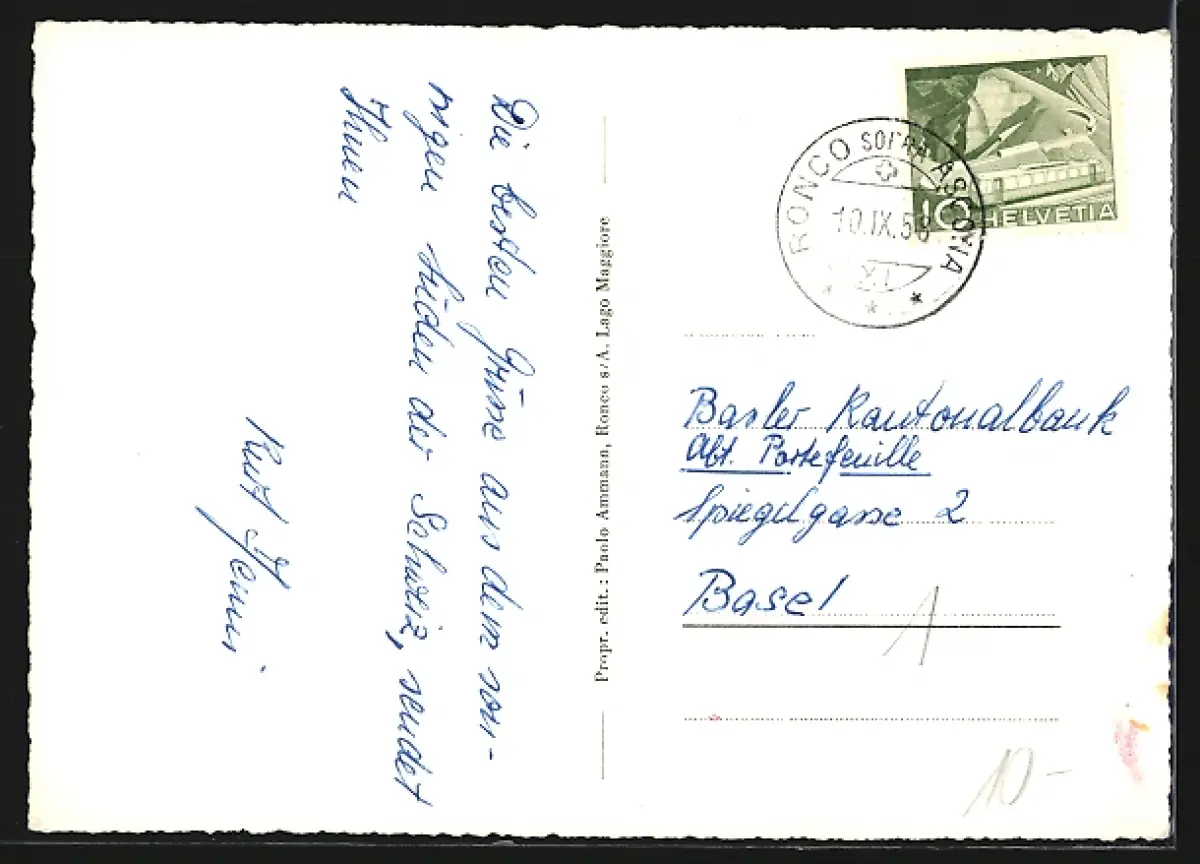 Die besten Grüsse aus dem son-
nigen Süden der Schweiz, sendet
Ihnen
Kurt Jenni
Propr. edit.: Paolo Ammann, Ronco s/A. Lago Maggiore
RONCO SOPRA ASCONA
10.IX.56
XI
10 HELVETIA
Basler Kantonalbank
Abt. Portefeuille
Spiegelgasse 2
Basel
1
10-